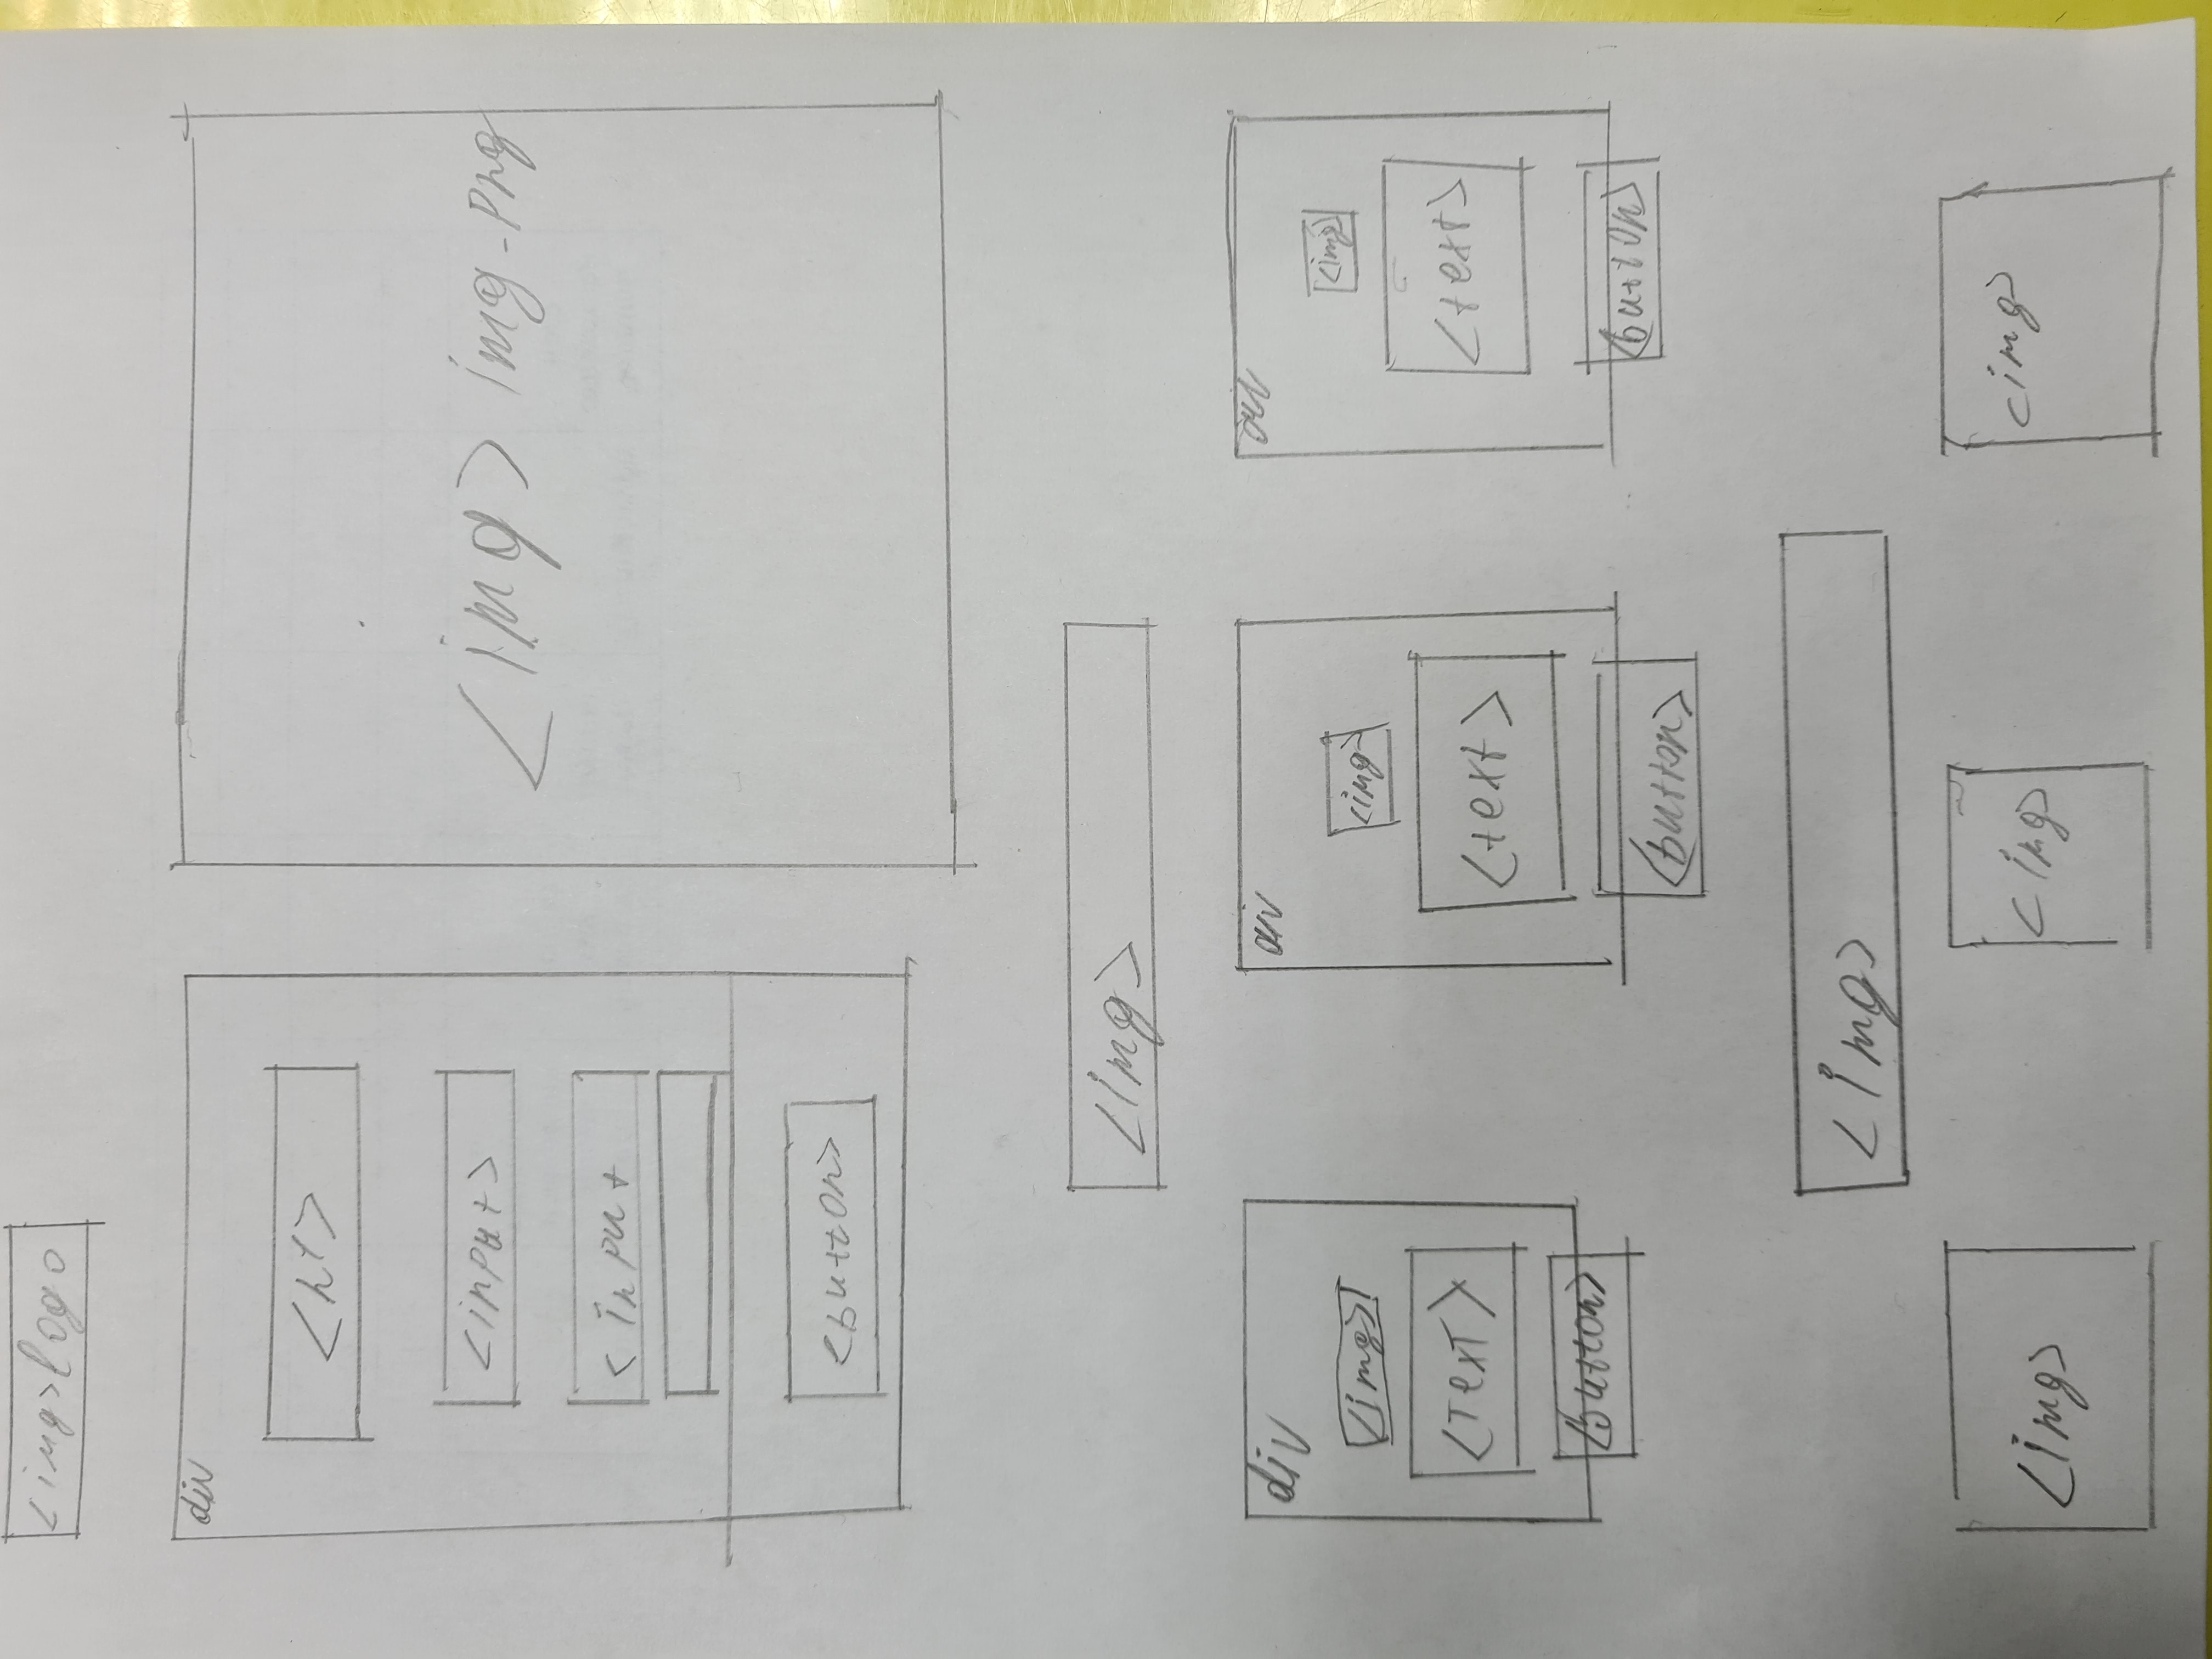 <img>logo
div
<h1>
<input>
<input
<button>
<img> img-png
<img>
div
<img>
<text>
<button>
div
<img>
<text>
<button>
div
<img>
<text>
<button>
<img>
<img>
<img>
<img>